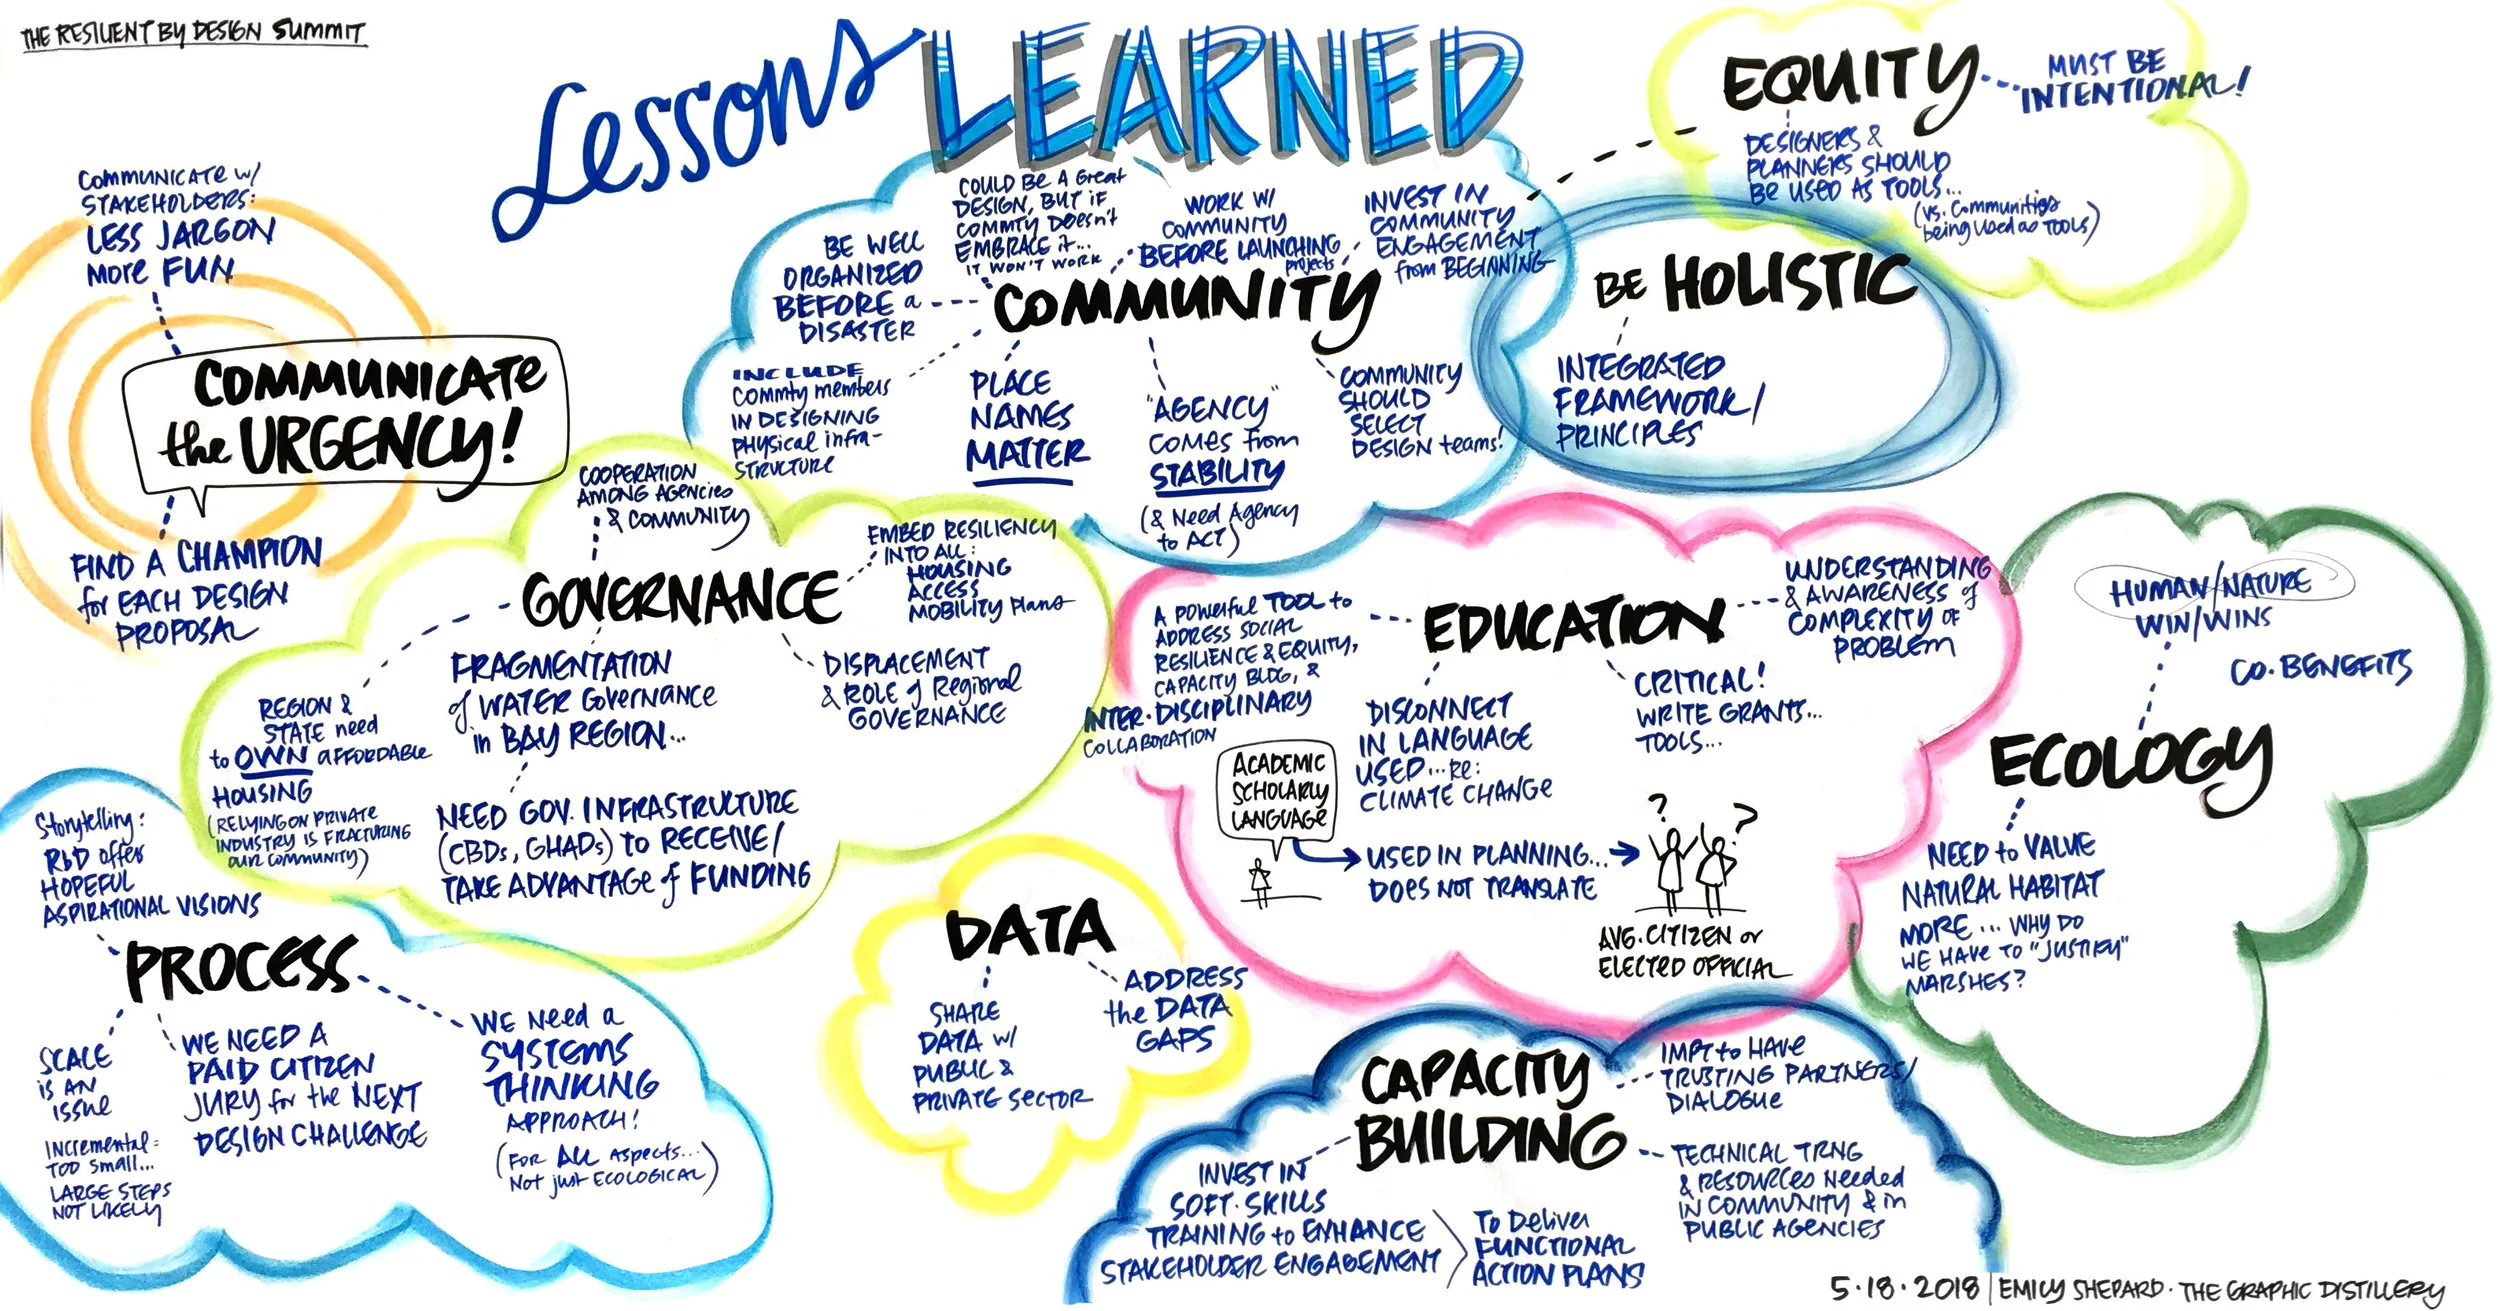 THE RESILIENT BY DESIGN SUMMIT
Lessons LEARNED
COMMUNICATE W/
STAKEHOLDERS:
LESS JARGON
MORE FUN
COMMUNICATE
the URGENCY!
FIND A CHAMPION
for EACH DESIGN
PROPOSAL
COMMUNITY
BE WELL
ORGANIZED
BEFORE a
DISASTER
COULD BE A Great
DESIGN, BUT if
COMMTY DOESN'T
EMBRACE it...
IT WON'T WORK
WORK W/
COMMUNITY
BEFORE LAUNCHING
projects
INVEST IN
COMMUNITY
ENGAGEMENT
from BEGINNING
INCLUDE
Commty members
IN DESIGNING
physical infra-
STRUCTURE
PLACE
NAMES
MATTER
"AGENCY"
COMES from
STABILITY
(& Need Agency
to ACT)
COMMUNITY
SHOULD
SELECT
DESIGN teams!
EQUITY
MUST BE
INTENTIONAL!
DESIGNERS &
PLANNERS SHOULD
BE USED AS TOOLS...
(vs. Communities
being used as TOOLS)
BE HOLISTIC
INTEGRATED
FRAMEWORK/
PRINCIPLES
GOVERNANCE
COOPERATION
AMONG AGENCIES
& COMMUNITY
EMBED RESILIENCY
INTO ALL:
HOUSING
ACCESS
MOBILITY Plans
REGION &
STATE need
to OWN AFFORDABLE
HOUSING
(RELYING ON PRIVATE
INDUSTRY IS FRACTURING
OUR COMMUNITY)
FRAGMENTATION
of WATER Governance
in BAY REGION...
NEED GOV. INFRASTRUCTURE
(CBDs, GHADs) TO RECEIVE/
TAKE ADVANTAGE of FUNDING
DISPLACEMENT
& ROLE of Regional
GOVERNANCE
EDUCATION
A POWERFUL TOOL to
ADDRESS SOCIAL
RESILIENCE & EQUITY,
CAPACITY BLDG, &
INTER-DISCIPLINARY
COLLABORATION
UNDERSTANDING
& AWARENESS of
COMPLEXITY OF
PROBLEM
DISCONNECT
IN LANGUAGE
USED... re:
CLIMATE CHANGE
CRITICAL!
WRITE GRANTS...
TOOLS...
ACADEMIC
SCHOLARLY
LANGUAGE
USED IN PLANNING...
DOES NOT TRANSLATE
? ?
AVG. CITIZEN or
ELECTED OFFICIAL
ECOLOGY
HUMAN/NATURE
WIN/WINS
CO-BENEFITS
NEED to VALUE
NATURAL HABITAT
MORE... WHY DO
WE HAVE TO "JUSTIFY"
MARSHES?
PROCESS
Storytelling:
RbD offer
HOPEFUL
ASPIRATIONAL VISIONS
SCALE
IS AN
ISSUE
Incremental=
TOO SMALL...
LARGE STEPS
NOT LIKELY
WE NEED A
PAID CITIZEN
JURY for the NEXT
DESIGN CHALLENGE
WE Need a
SYSTEMS
THINKING
APPROACH!
(FOR ALL Aspects...
Not just ECOLOGICAL)
DATA
SHARE
DATA W/
PUBLIC &
PRIVATE SECTOR
ADDRESS
the DATA
GAPS
CAPACITY
BUILDING
IMPT to HAVE
TRUSTING PARTNERS/
DIALOGUE
INVEST IN
SOFT-SKILLS
TRAINING to ENHANCE
STAKEHOLDER ENGAGEMENT
TO Deliver
FUNCTIONAL
ACTION PLANS
TECHNICAL TRNG
& RESOURCES Needed
IN COMMUNITY & in
PUBLIC AGENCIES
5·18·2018 | EMILY SHEPARD · THE GRAPHIC DISTILLERY